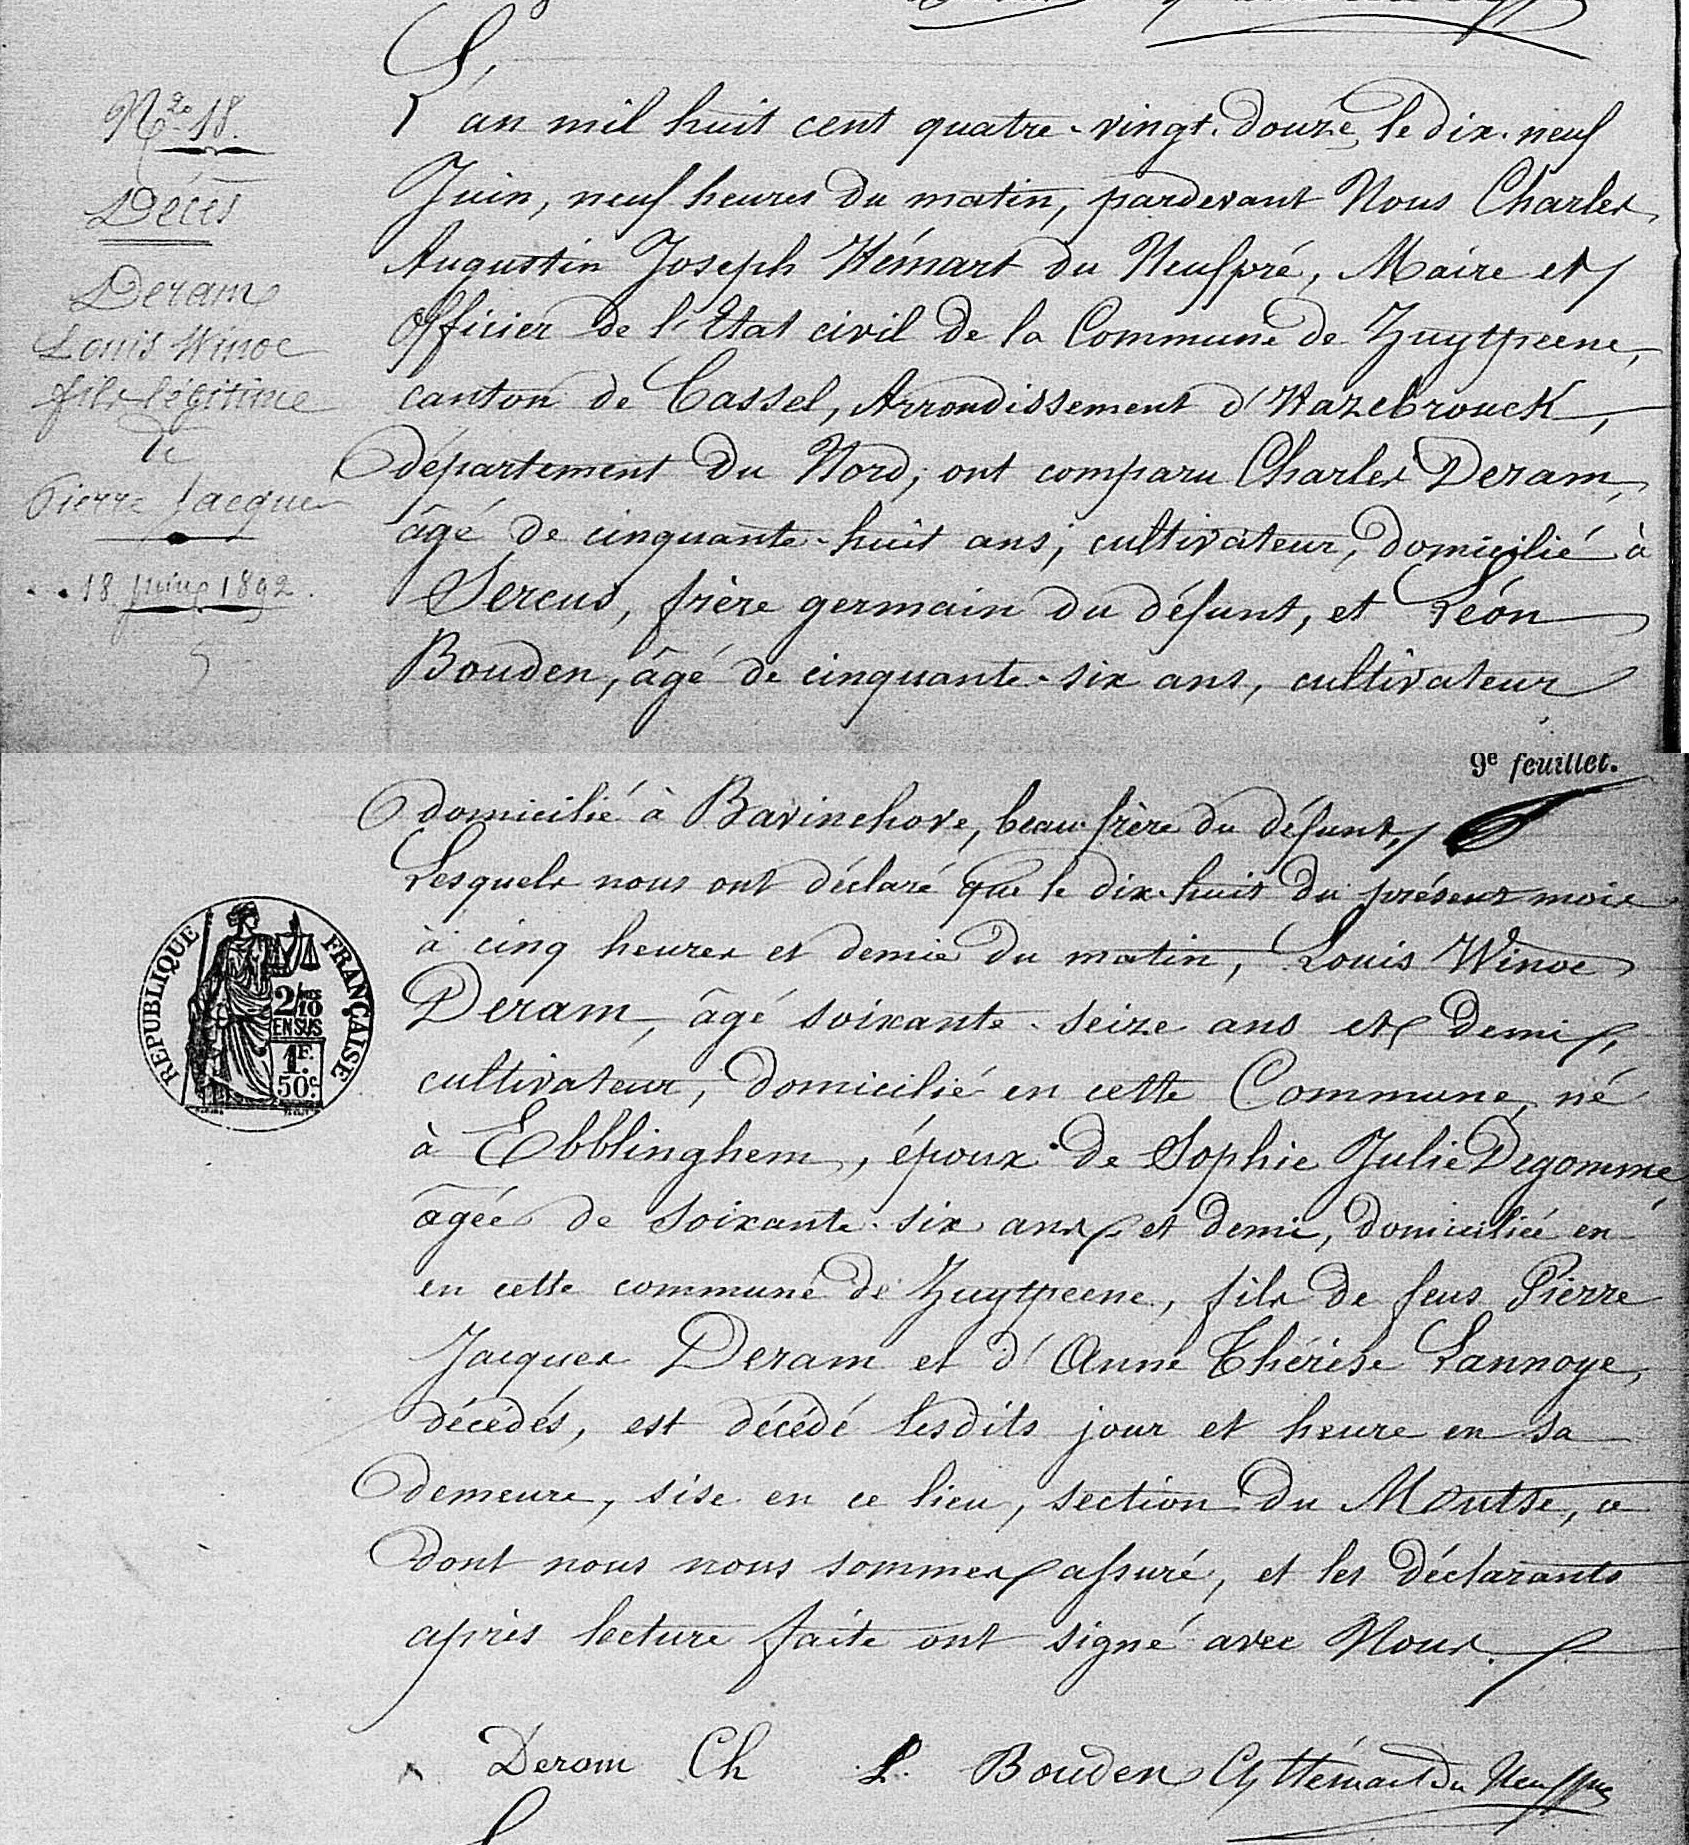 Nº 18.
Décès
Deram
Louis Winoc
fils légitime
de
Pierre Jacques
18 juin 1892.
L'an mil huit cent quatre-vingt-douze, le dix-neuf
Juin, neuf heures du matin, pardevant Nous Charles
Augustin Joseph Hémart du Neufpré, Maire et
Officier de l'Etat civil de la Commune de Zuytpeene,
canton de Cassel, Arrondissement d'Hazebrouck,
département du Nord, ont comparu Charles Deram,
âgé de cinquante-huit ans, cultivateur, domicilié à
Sercus, frère germain du défunt, et Léon
Bouden, âgé de cinquante-six ans, cultivateur
9e feuillet.
domicilié à Bavinchove, beau-frère du défunt,
Lesquels nous ont déclaré que le dix-huit du présent mois
à cinq heures et demie du matin, Louis Winoc
Deram, âgé soixante-seize ans et demi,
cultivateur, domicilié en cette Commune, né
à Ebblinghem, époux de Sophie Julie Degomme,
âgée de soixante-six ans et demi, domiciliée en
en cette commune de Zuytpeene, fils de feus Pierre
Jacques Deram et d'Anne Thérèse Lannoye,
décedés, est décédé lesdits jour et heure en sa
demeure, sise en ce lieu, section du Moutse, ce
dont nous nous sommes assuré, et les déclarants
après lecture faite ont signé avec Nous.
REPUBLIQUE FRANÇAISE
2/10mes
EN SUS
1F.
50c.
Deram Ch L. Bouden Ch Hémart du Neufpré